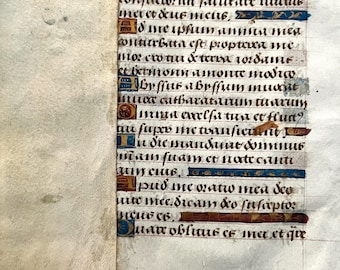 salutare vultus
mei et deus meus.
Ad me ipsum anima mea
conturbata est propterea me
mor ero tui de terra iordanis
et hermonii a monte modico
Abyssus abyssum invocat
in voce catharactarum tuarum
Omnia excelsa tua et fluct9
tui super me transierunt.
In die mandavit dominus
miam suam et nocte canti
cum eius.
Apud me oratio mea deo
vite mee dicam deo susceptor
meus es.
Quare oblitus es mei et